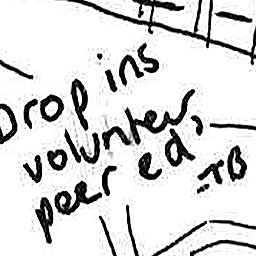 Drop ins
volunteer,
peer ed.
-TB